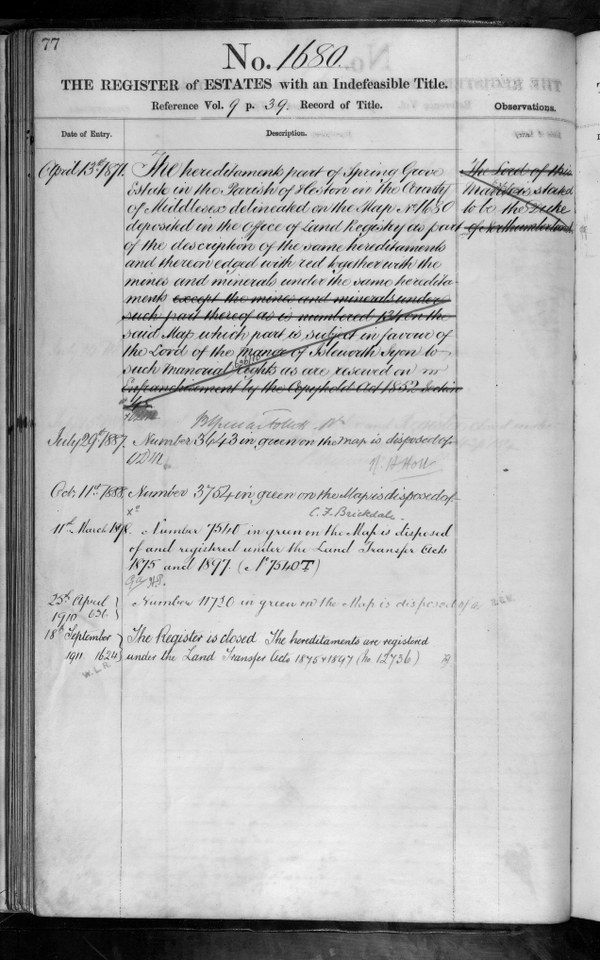 77
No. 1680
THE REGISTER of ESTATES with an Indefeasible Title.
Reference Vol. 9 p. 39. Record of Title.
Observations.
Date of Entry.
Description.
April 13th 1871. The hereditaments part of Spring Grove
Estate in the Parish of Heston in the County
of Middlesex delineated on the Map No 1680
deposited in the Office of Land Registry as part
of the description of the same hereditaments
and thereon edged with red together with the
mines and minerals under the same heredita-
ments except the mines and minerals under
such part thereof as is numbered 134 on the
said Map which part is subject in favour of
the Lord of the manor of Isleworth Syon to
such manorial rights as are reserved on
Enfranchisement by the Copyhold Act 1852 Section
48
The Lord of this
Manor is stated
to be the Duke
of Northumberland
July 29th 1887. Number 3643 in green on the map is disposed of
Oct. 11th 1888. Number 3754 in green on the Map is disposed of
C. F. Brickdale.
11th March 1898. Number 7540 in green on the Map is disposed
of and registered under the Land Transfer Acts
1875 and 1897. (No 7540T)
25th April
1910 636
Number 11720 in green on the Map is disposed of
18th September
1911 1624
The Register is closed The hereditaments are registered
under the Land Transfer Acts 1875 & 1897 (No. 12736)
W.L.R.